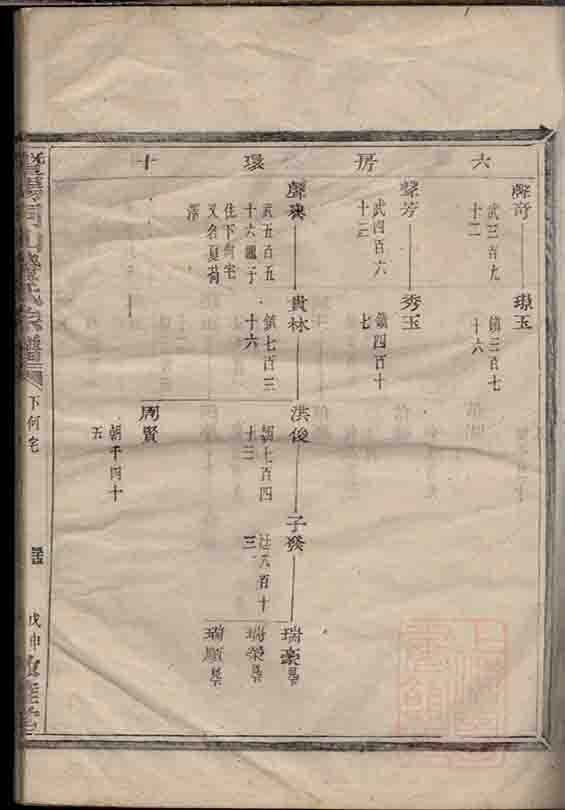 六 房 環 十
聲奇
武三百九
十二
璟玉
鎮三百七
十六
聲芳
武四百六
十三
秀玉
鎮四百十
七
武五百五
十六繼子
住下何宅
又名夏荷
貴林
鎮七百三
十六
洪俊
朝七百四
十三
子發
廷六百十
三
瑞豪
瑞榮
瑞順
周賢
朝千四十
五
宗譜
下何宅
戊申